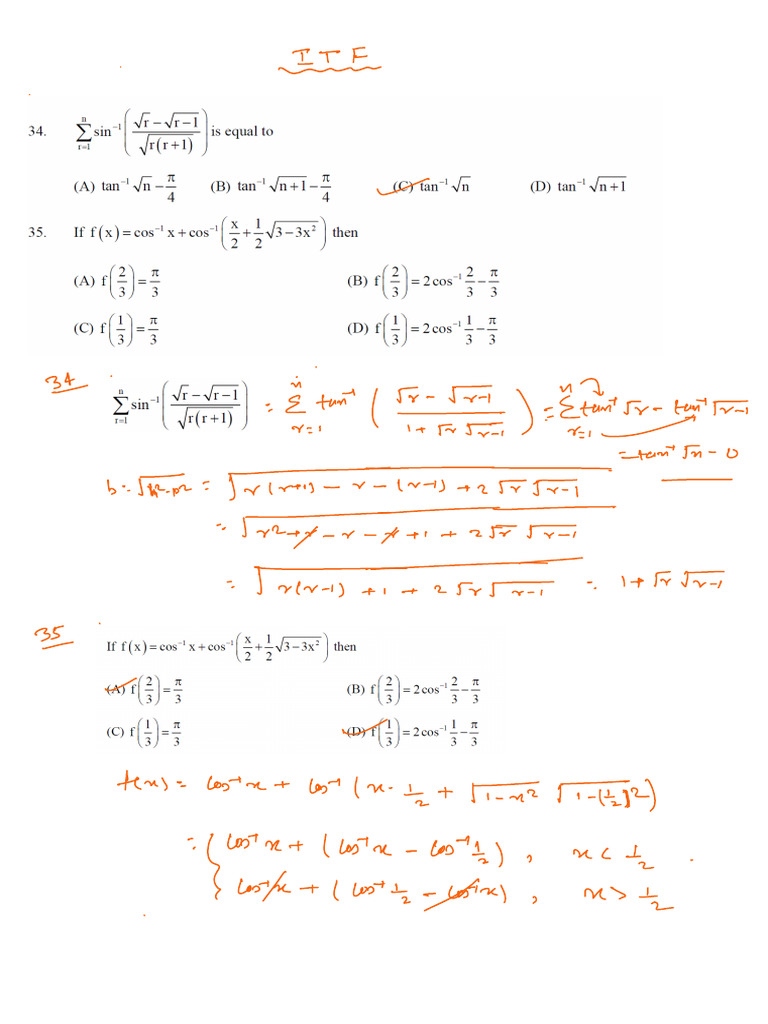 ITF
34. \sum_{r=1}^{n} sin⁻¹((√r − √(r−1))/√(r(r+1))) is equal to
(A) tan⁻¹√n − π/4 (B) tan⁻¹√(n+1) − π/4 (C) tan⁻¹√n (D) tan⁻¹√(n+1)
35. If f(x) = cos⁻¹x + cos⁻¹(x/2 + 1/2 √(3−3x²)) then
(A) f(2/3) = π/3 (B) f(2/3) = 2cos⁻¹ 2/3 − π/3
(C) f(1/3) = π/3 (D) f(1/3) = 2cos⁻¹ 1/3 − π/3
34 \sum_{r=1}^{n} sin⁻¹((√r − √(r−1))/√(r(r+1))) = \sum_{r=1}^{n} tan⁻¹((√r − √(r−1))/(1+√r √(r−1))) = \sum_{r=1}^{n} tan⁻¹√r − tan⁻¹√(r−1)
= tan⁻¹√n − 0
b = √(h²−p²) = √(r(r+1) − r − (r−1) + 2√r √(r−1))
= √(r² + r − r − r + 1 + 2√r √(r−1))
= √(r(r−1) + 1 + 2√r √(r−1)) = 1+√r √(r−1)
35
If f(x) = cos⁻¹x + cos⁻¹(x/2 + 1/2 √(3−3x²)) then
(A) f(2/3) = π/3 (B) f(2/3) = 2cos⁻¹ 2/3 − π/3
(C) f(1/3) = π/3 (D) f(1/3) = 2cos⁻¹ 1/3 − π/3
f(x) = cos⁻¹x + cos⁻¹(x·1/2 + √(1−x²) √(1−(1/2)²))
= { cos⁻¹x + (cos⁻¹x − cos⁻¹ 1/2), x < 1/2
cos⁻¹x + (cos⁻¹ 1/2 − cos⁻¹x), x > 1/2